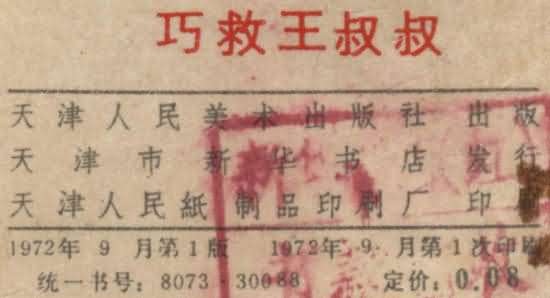 巧救王叔叔
天津人民美术出版社 出版
天津市新华书店 发行
天津人民紙制品印刷厂 印刷
1972年9月第1版 1972年9月第1次印刷
统一书号：8073·30088 定价：0.08